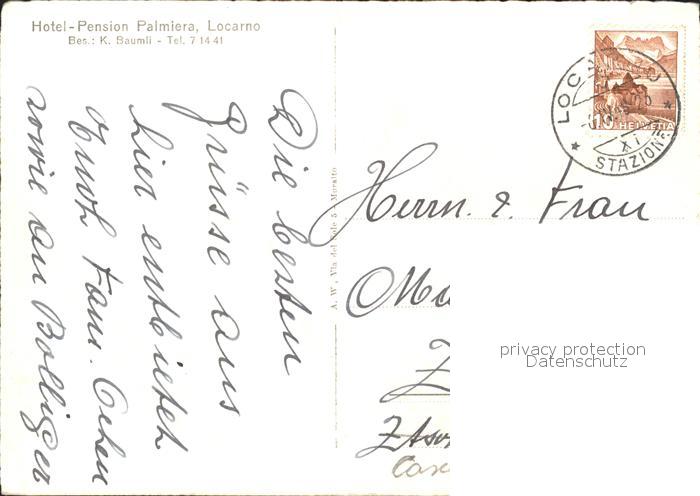 Hotel-Pension Palmiera, Locarno
Bes.: K. Baumli - Tel. 7 14 41
Die besten
Grüsse aus
hier entbietet
Euch Fam.
sowie an Bolliger
A. W., Via del Sole 5, Muralto
LOCARNO
STAZIONE
XI
10 HELVETIA
Herrn. & Frau
privacy protection
Datenschutz